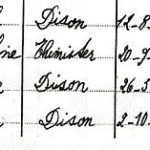 Dison 12-8
ne Elinister 20-9
Dison 26-5
Dison 2-10